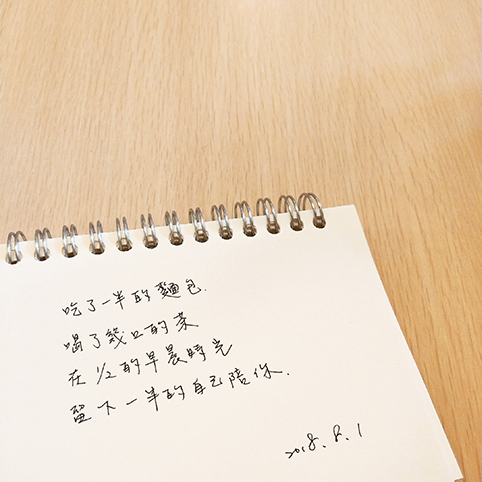 吃了一半的麵包.
喝了幾口的茶
在1/2的早晨時光
留下一半的自己陪你.
2018.8.1